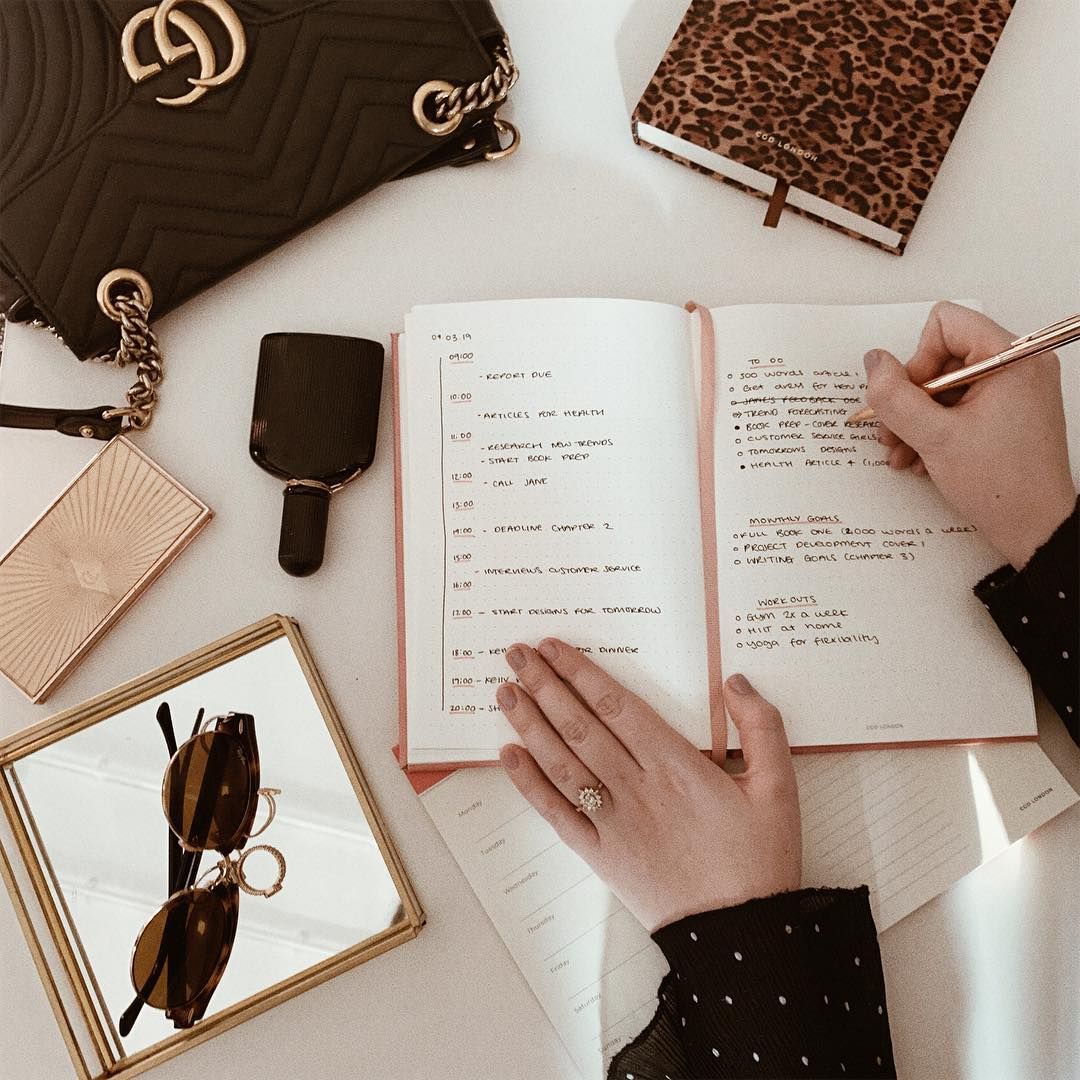 CGD LONDON
09.03.19
09:00
- REPORT DUE
10:00
- ARTICLES FOR HEALTH
11:00
- RESEARCH NEW TRENDS
- START BOOK PREP
12:00
- CALL JANE
13:00
14:00 - DEADLINE CHAPTER 2
15:00
- INTERVIEWS CUSTOMER SERVICE
16:00
17:00 - START DESIGNS FOR TOMORROW
18:00 - DINNER
19:00 - KELLY
20:00
TO DO
500 WORDS ARTICLE 1
GET DRAM FOR
JANE'S FEEDBACK DUE
TREND FORECASTING
BOOK PREP - COVER
CUSTOMER SERVICE GIRLS
TOMORROWS DESIGNS
HEALTH ARTICLE 4
MONTHLY GOALS
FULL BOOK ONE (2,000 words a week)
PROJECT DEVELOPMENT COVER 1
WRITING GOALS (CHAPTER 3)
WORKOUTS
GYM 2x a week
HIIT at home
yoga for flexibility
CGD LONDON
Monday
Tuesday
Wednesday
Thursday
Friday
Saturday
Sunday
CGD LONDON